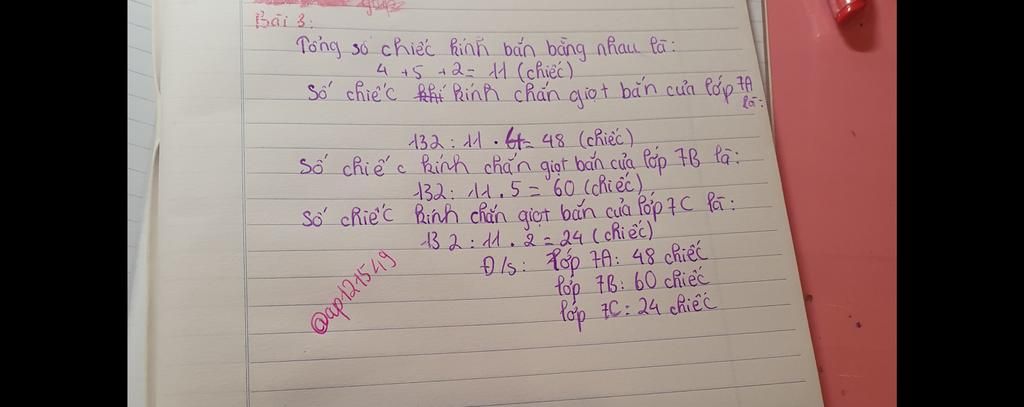 Bài 3:
Tổng số chiếc kính bán bằng nhau là:
4 + 5 + 2 = 11 (chiếc)
Số chiếc khí kính chắn giọt bắn của lớp 7A là:
132 : 11 . 4 = 48 (chiếc)
Số chiếc kính chắn giọt bắn của lớp 7B là:
132 : 11 . 5 = 60 (chiếc)
Số chiếc kính chắn giọt bắn của lớp 7C là:
132 : 11 . 2 = 24 (chiếc)
Đ/s: lớp 7A: 48 chiếc
lớp 7B: 60 chiếc
lớp 7C: 24 chiếc
@ap121549